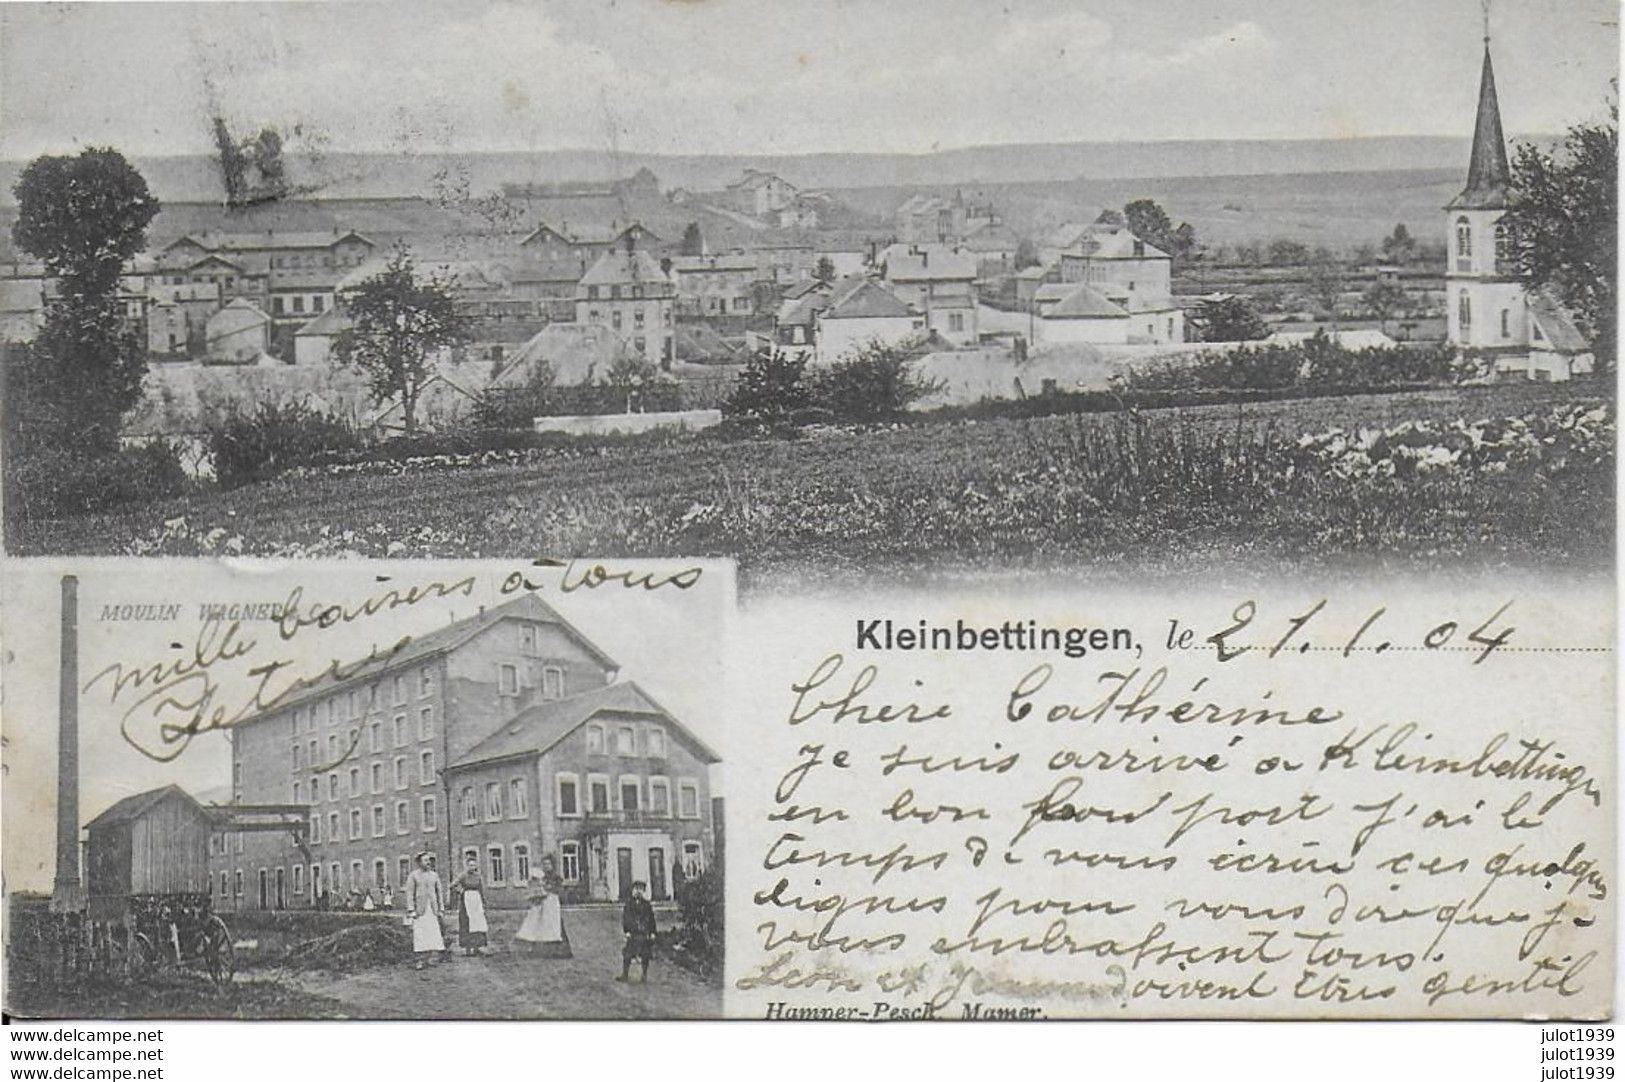 mille baisers à tous
MOULIN WAGNER
Kleinbettingen, le 21.1.04
Chère Cathérine
Je suis arrivé a Kleinbettingen
en bon port j'ai le
temps de vous écrire ces quelques
lignes pour vous dire que je
vous embrassent tous.
Leon et doivent êtres gentil
Hamper-Pesch, Mamer.
www.delcampe.net julot1939
www.delcampe.net julot1939
www.delcampe.net julot1939